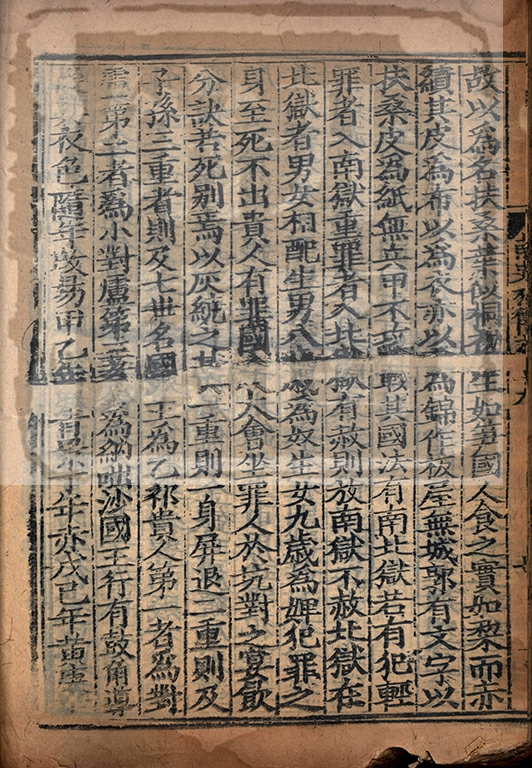 故以爲名扶桑葉似桐初生如笋國人食之實如梨而赤
績其皮爲布以爲衣亦以爲錦作板屋無城郭有文字以
扶桑皮爲紙無兵甲不攻戰其國法有南北獄若有犯輕
罪者入南獄重罪者入北獄有赦則放南獄不赦北獄在
北獄者男女相配生男八歲爲奴生女九歲爲婢犯罪之
身至死不出貴人有罪國人大會坐罪人於坑對之宴飲
分訣若死別焉以灰繞之其一重則一身屏退二重則及
子孫三重者則及七世名國王爲乙祁貴人第一者爲對
盧第二者爲小對盧第三者爲納咄沙國王行有鼓角導
衣色隨年改易甲乙年青丙丁年赤戊己年黃庚